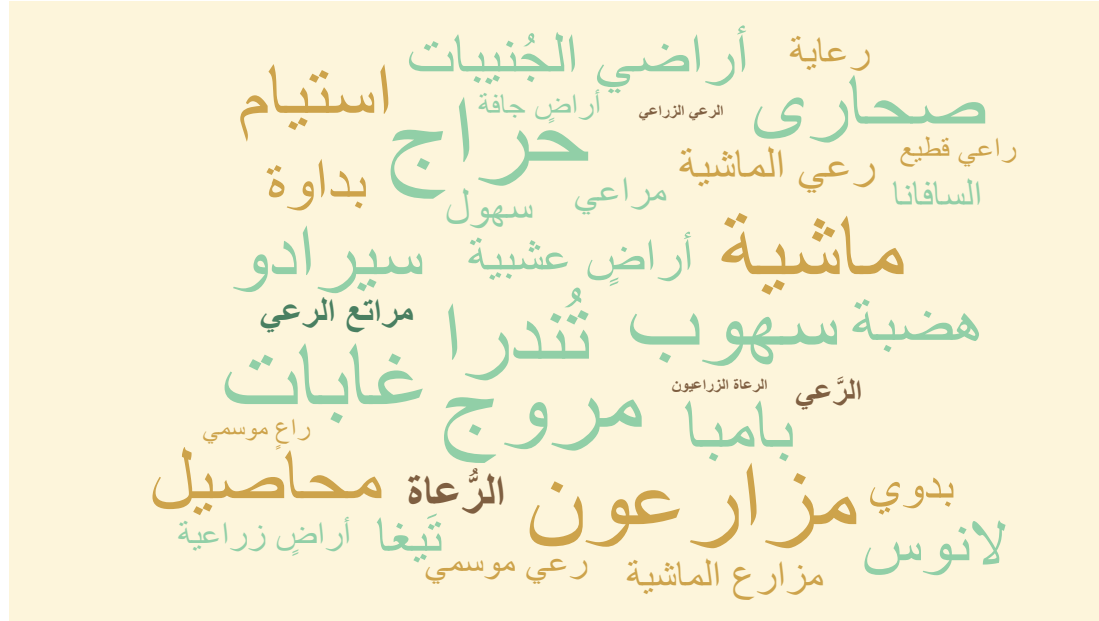 أراضي الجُنيبات
رعاية
استيام
أراضٍ جافة
الرعي الزراعي
صحارى
حَراج
راعي قطيع
رعي الماشية
بداوة
مراعي
السافانا
سهول
ماشية
سيرادو
أراضٍ عشبية
مراتع الرعي
تُندرا
سهوب
هضبة
غابات
الرعاة الزراعيون
الرَّعي
مروج
بامبا
راعٍ موسمي
محاصيل
الرُّعاة
مزارعون
بدوي
أراضٍ زراعية
تَيغا
لانوس
رعي موسمي
مزارع الماشية